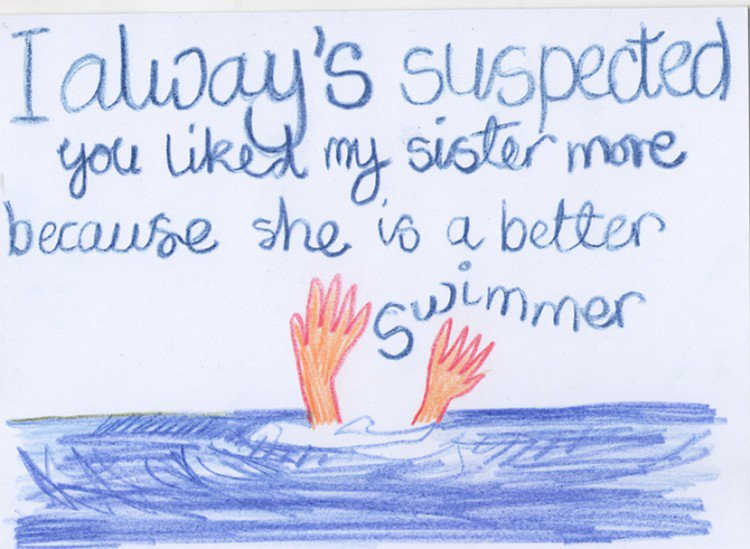 I alway's suspected
you liked my sister more
because she is a better
swimmer